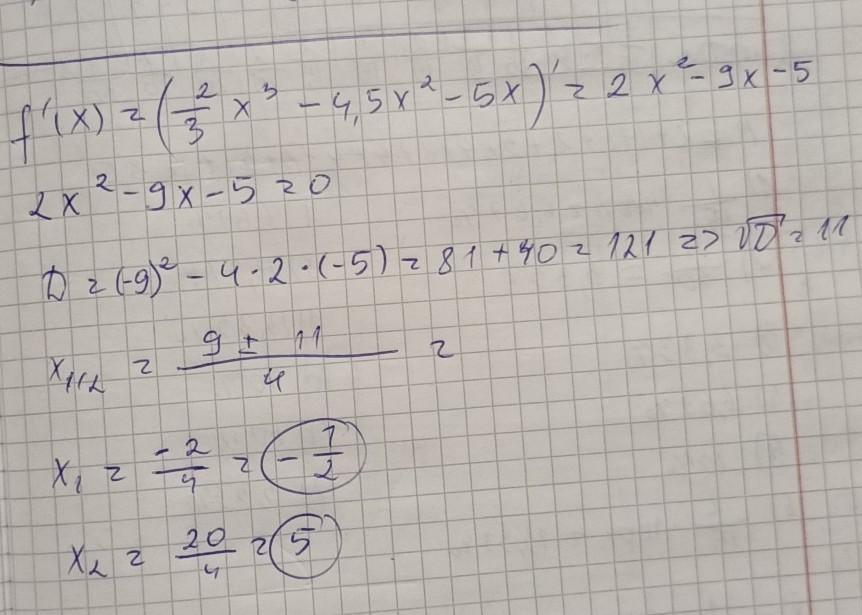 f'(x) = (2/3 x³ - 4,5x² - 5x)' = 2x² - 9x - 5
2x² - 9x - 5 = 0
D = (-9)² - 4 · 2 · (-5) = 81 + 40 = 121 => √D = 11
x₁,₂ = (9 ± 11)/4 =
x₁ = -2/4 = -1/2
x₂ = 20/4 = 5